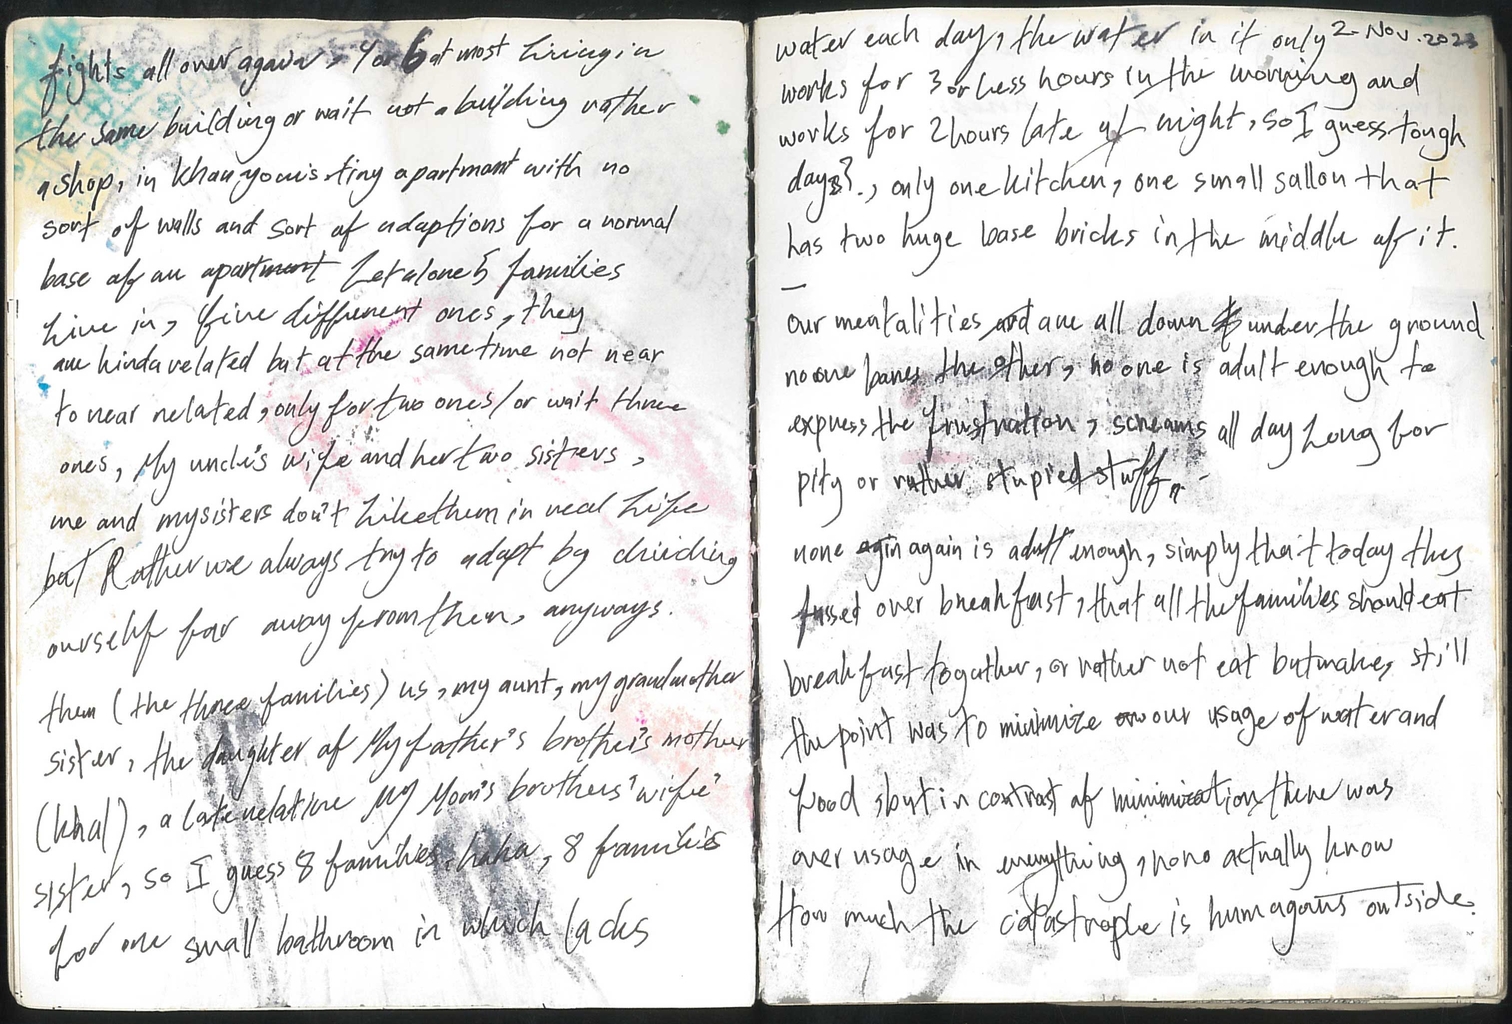 fights all over again, 4 or 6 at most living in
the same building or wait not a building rather
a shop, in khanyounis tiny apartment with no
sort of walls and sort of adaptions for a normal
base of an apartment Let alone 5 families
Live in, five different ones, they
are kinda related but at the same time not near
to near related, only for two ones/or wait three
ones, My uncle's wife and her two sisters,
me and my sisters don't Like them in real Life
but Rather we always try to adapt by
ourself far away from them, anyways.
them (the three families) us, my aunt, my grandmother
sister, the daughter of My father's brother's mother
(khal), a late relative My Mom's brothers' wife'
sister, so I guess 8 families haha, 8 families
for one small bathroom in which lacks
2 Nov. 2023
water each day, the water in it only
works for 3 or Less hours in the morning and
works for 2 hours late at night, so I guess tough
days?., only one kitchen, one small sallon that
has two huge base bricks in the middle of it.
—
our mentalities and are all down under the ground
no one bares the other, no one is adult enough to
express the frustration, screams all day Long for
pity or rather stupied stuff,
none again is adult enough, simply that today they
fussed over breakfast, that all the families should eat
breakfast together, or rather not eat but make, still
the point was to minimize our usage of water and
food, but in contrast of minimization there was
over usage in everything, no no actually know
How much the catastrophe is humagous outside.